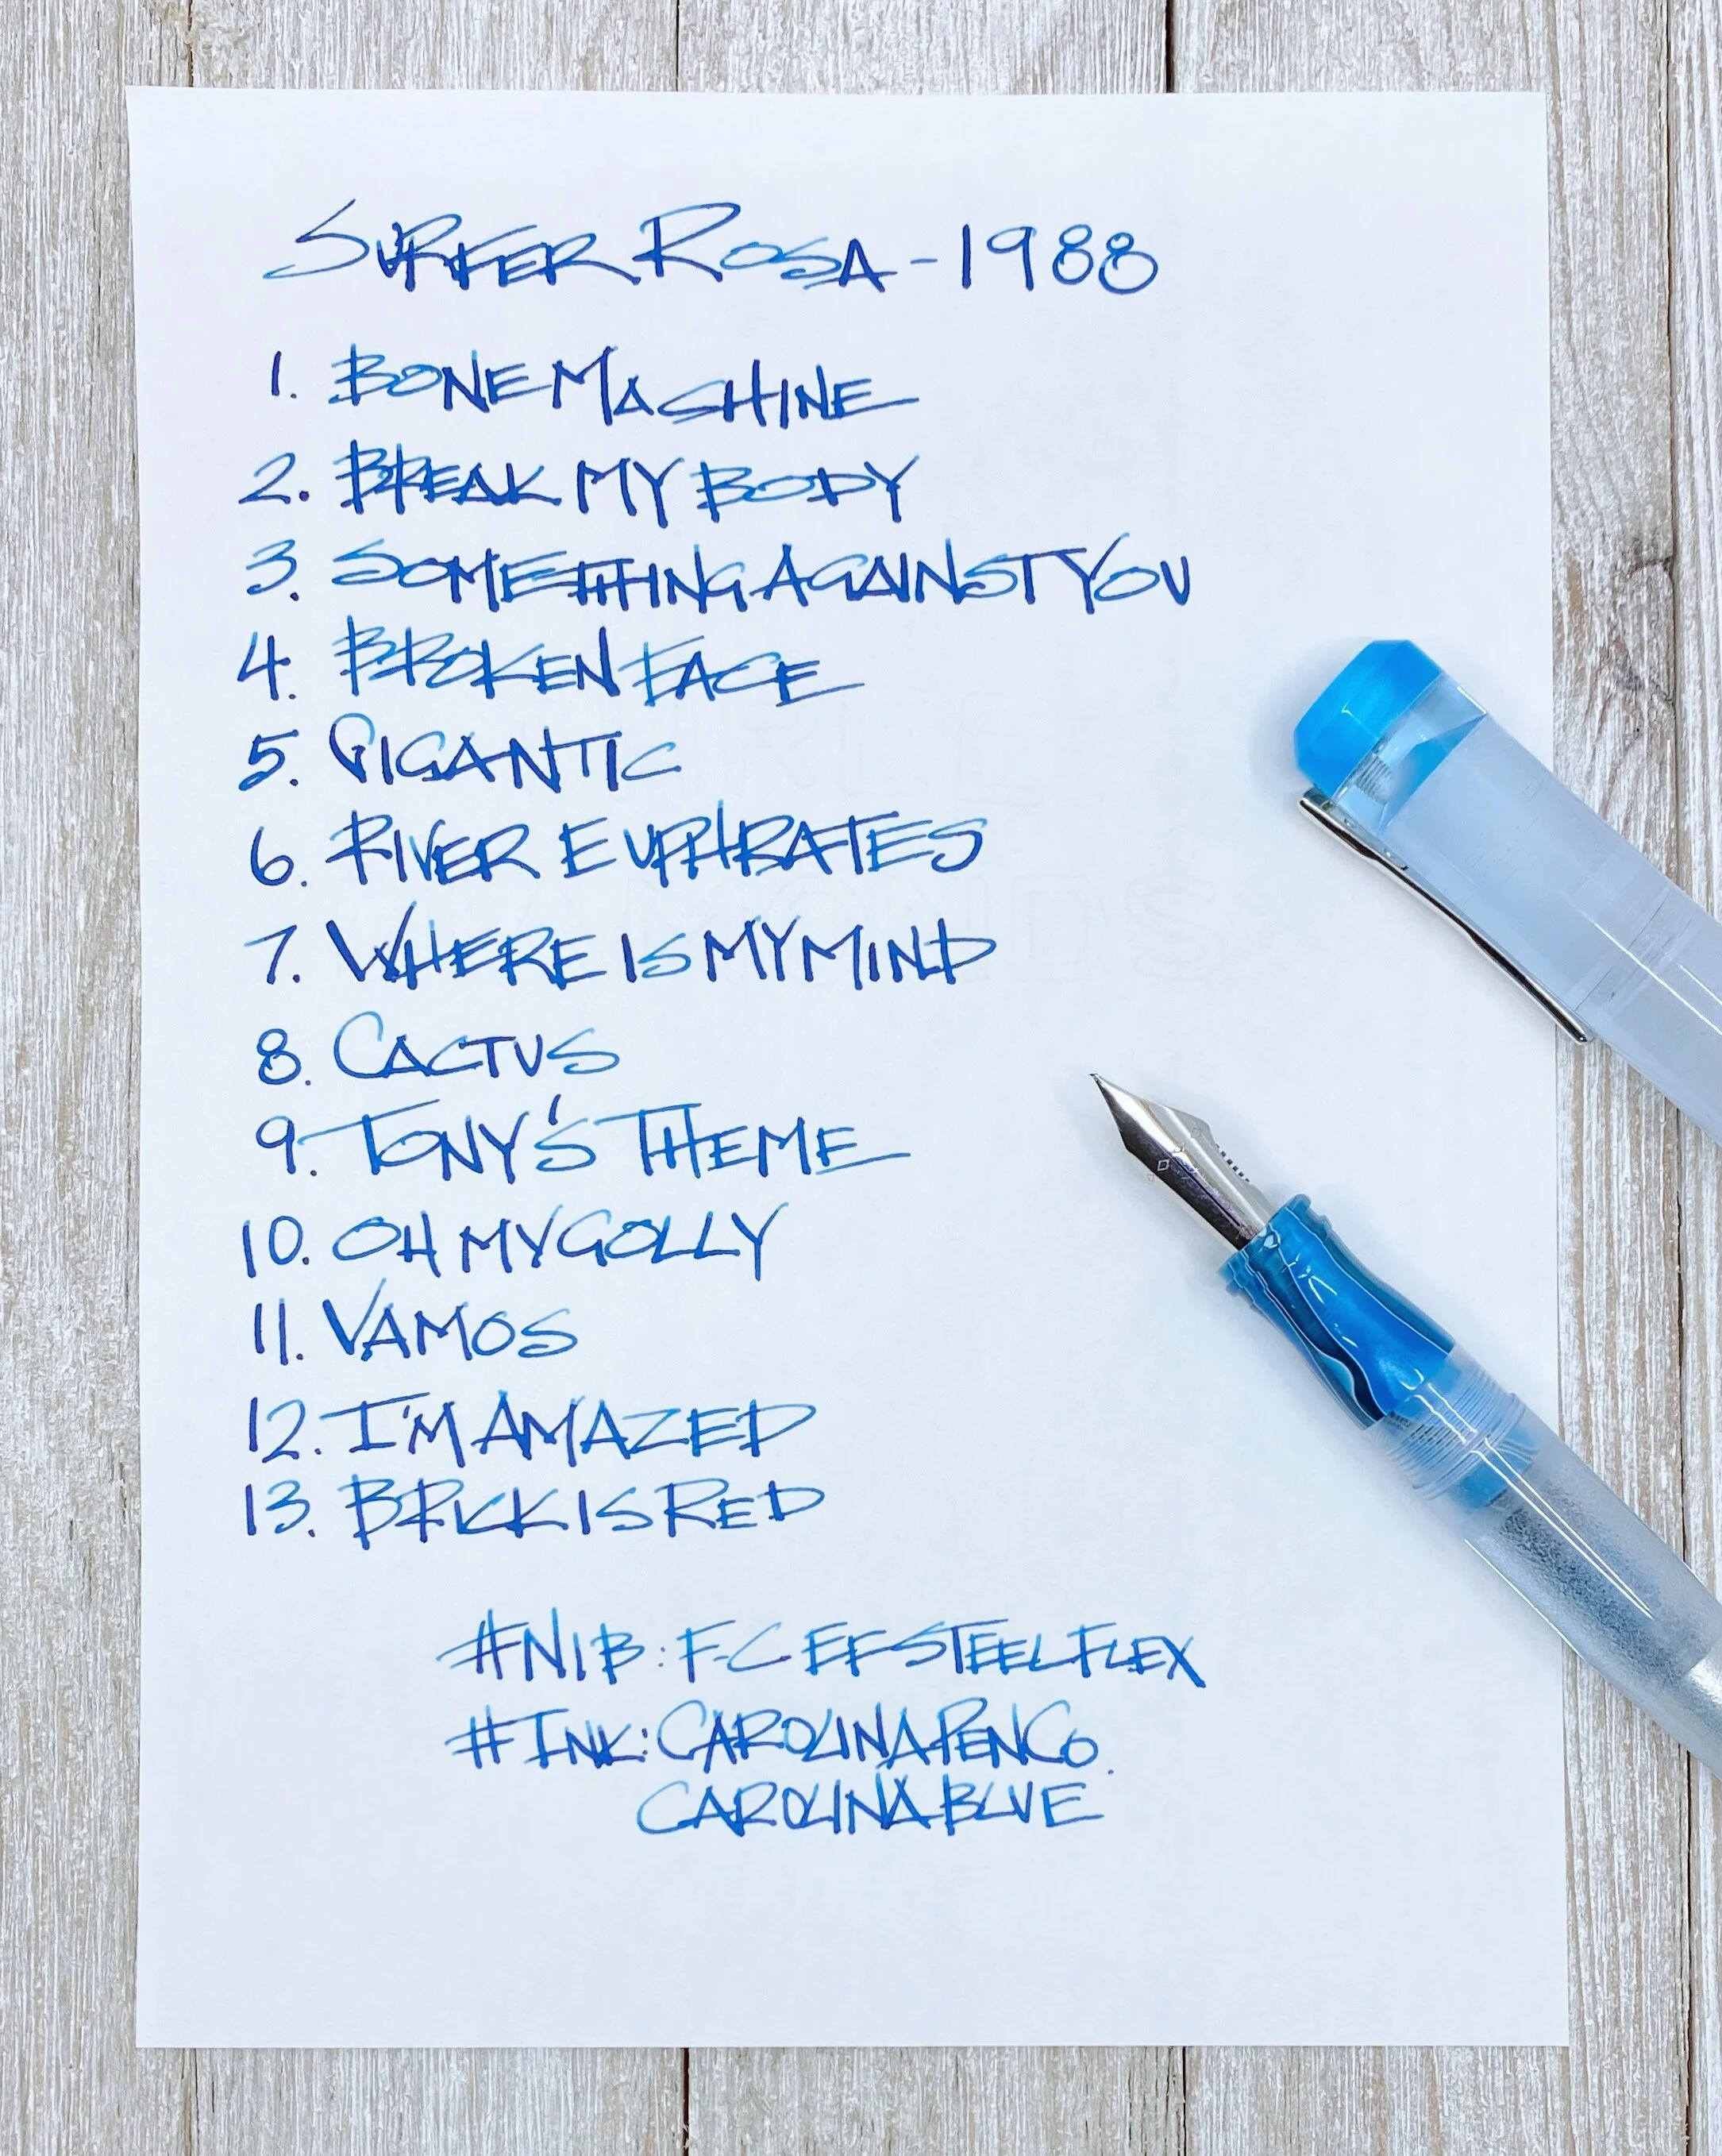 SURFER ROSA - 1988
1. BONE MACHINE
2. BREAK MY BODY
3. SOMETHING AGAINST YOU
4. BROKEN FACE
5. GIGANTIC
6. RIVER EUPHRATES
7. WHERE IS MY MIND
8. CACTUS
9. TONY'S THEME
10. OH MY GOLLY
11. VAMOS
12. I'M AMAZED
13. BRICK IS RED
#NIB: F-C EF STEEL FLEX
#INK: CAROLINA PEN CO.
CAROLINA BLUE